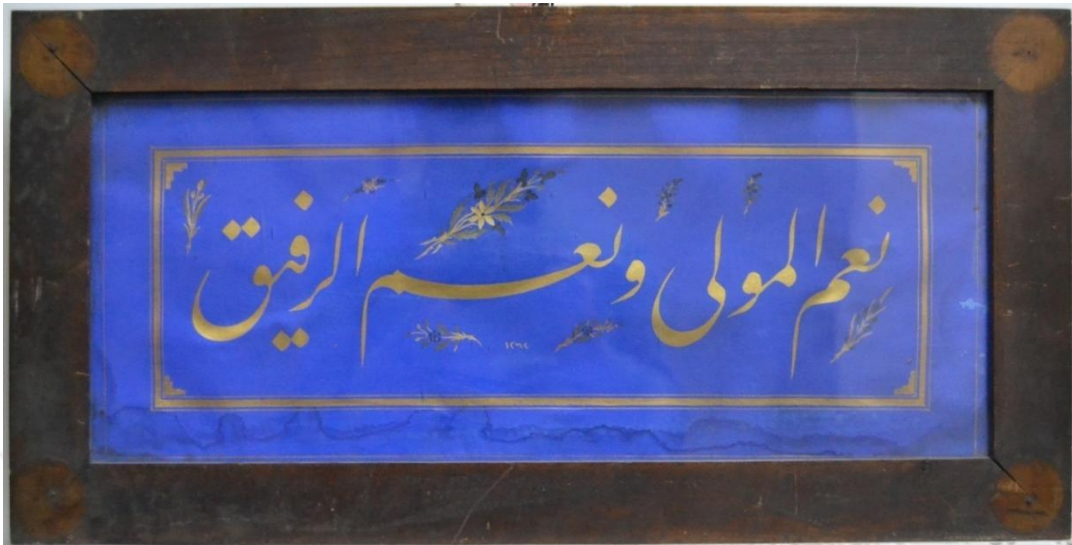 نعم المولى ونعم الرفيق